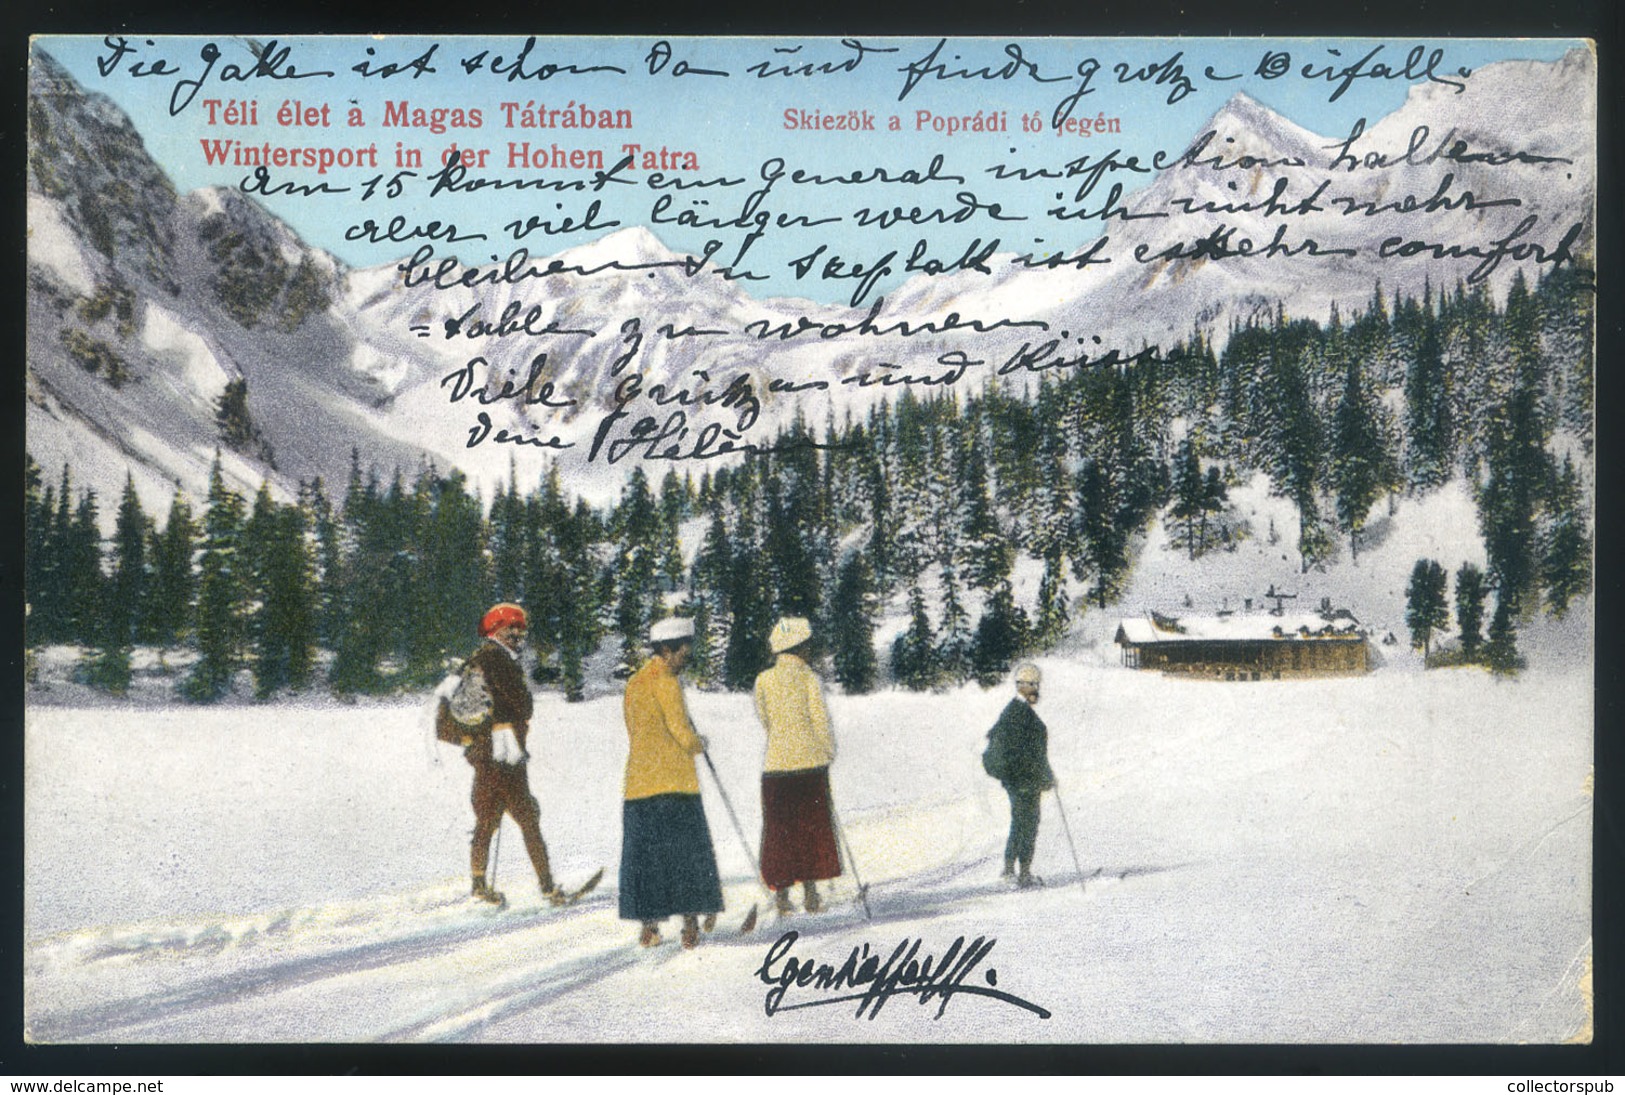 Die Jake ist schon da und finde grotze Beifall.
Téli élet à Magas Tátrában
Skiezök a Poprádi tó jegén
Wintersport in der Hohen Tatra
Am 15 kommt ein General inspection halten
aber viel länger werde ich nicht mehr
bleiben. In ist es sehr comfort
=table zu wohnen.
Viele Grütze und Küsse
Deine Hélène
www.delcampe.net
collectorspub